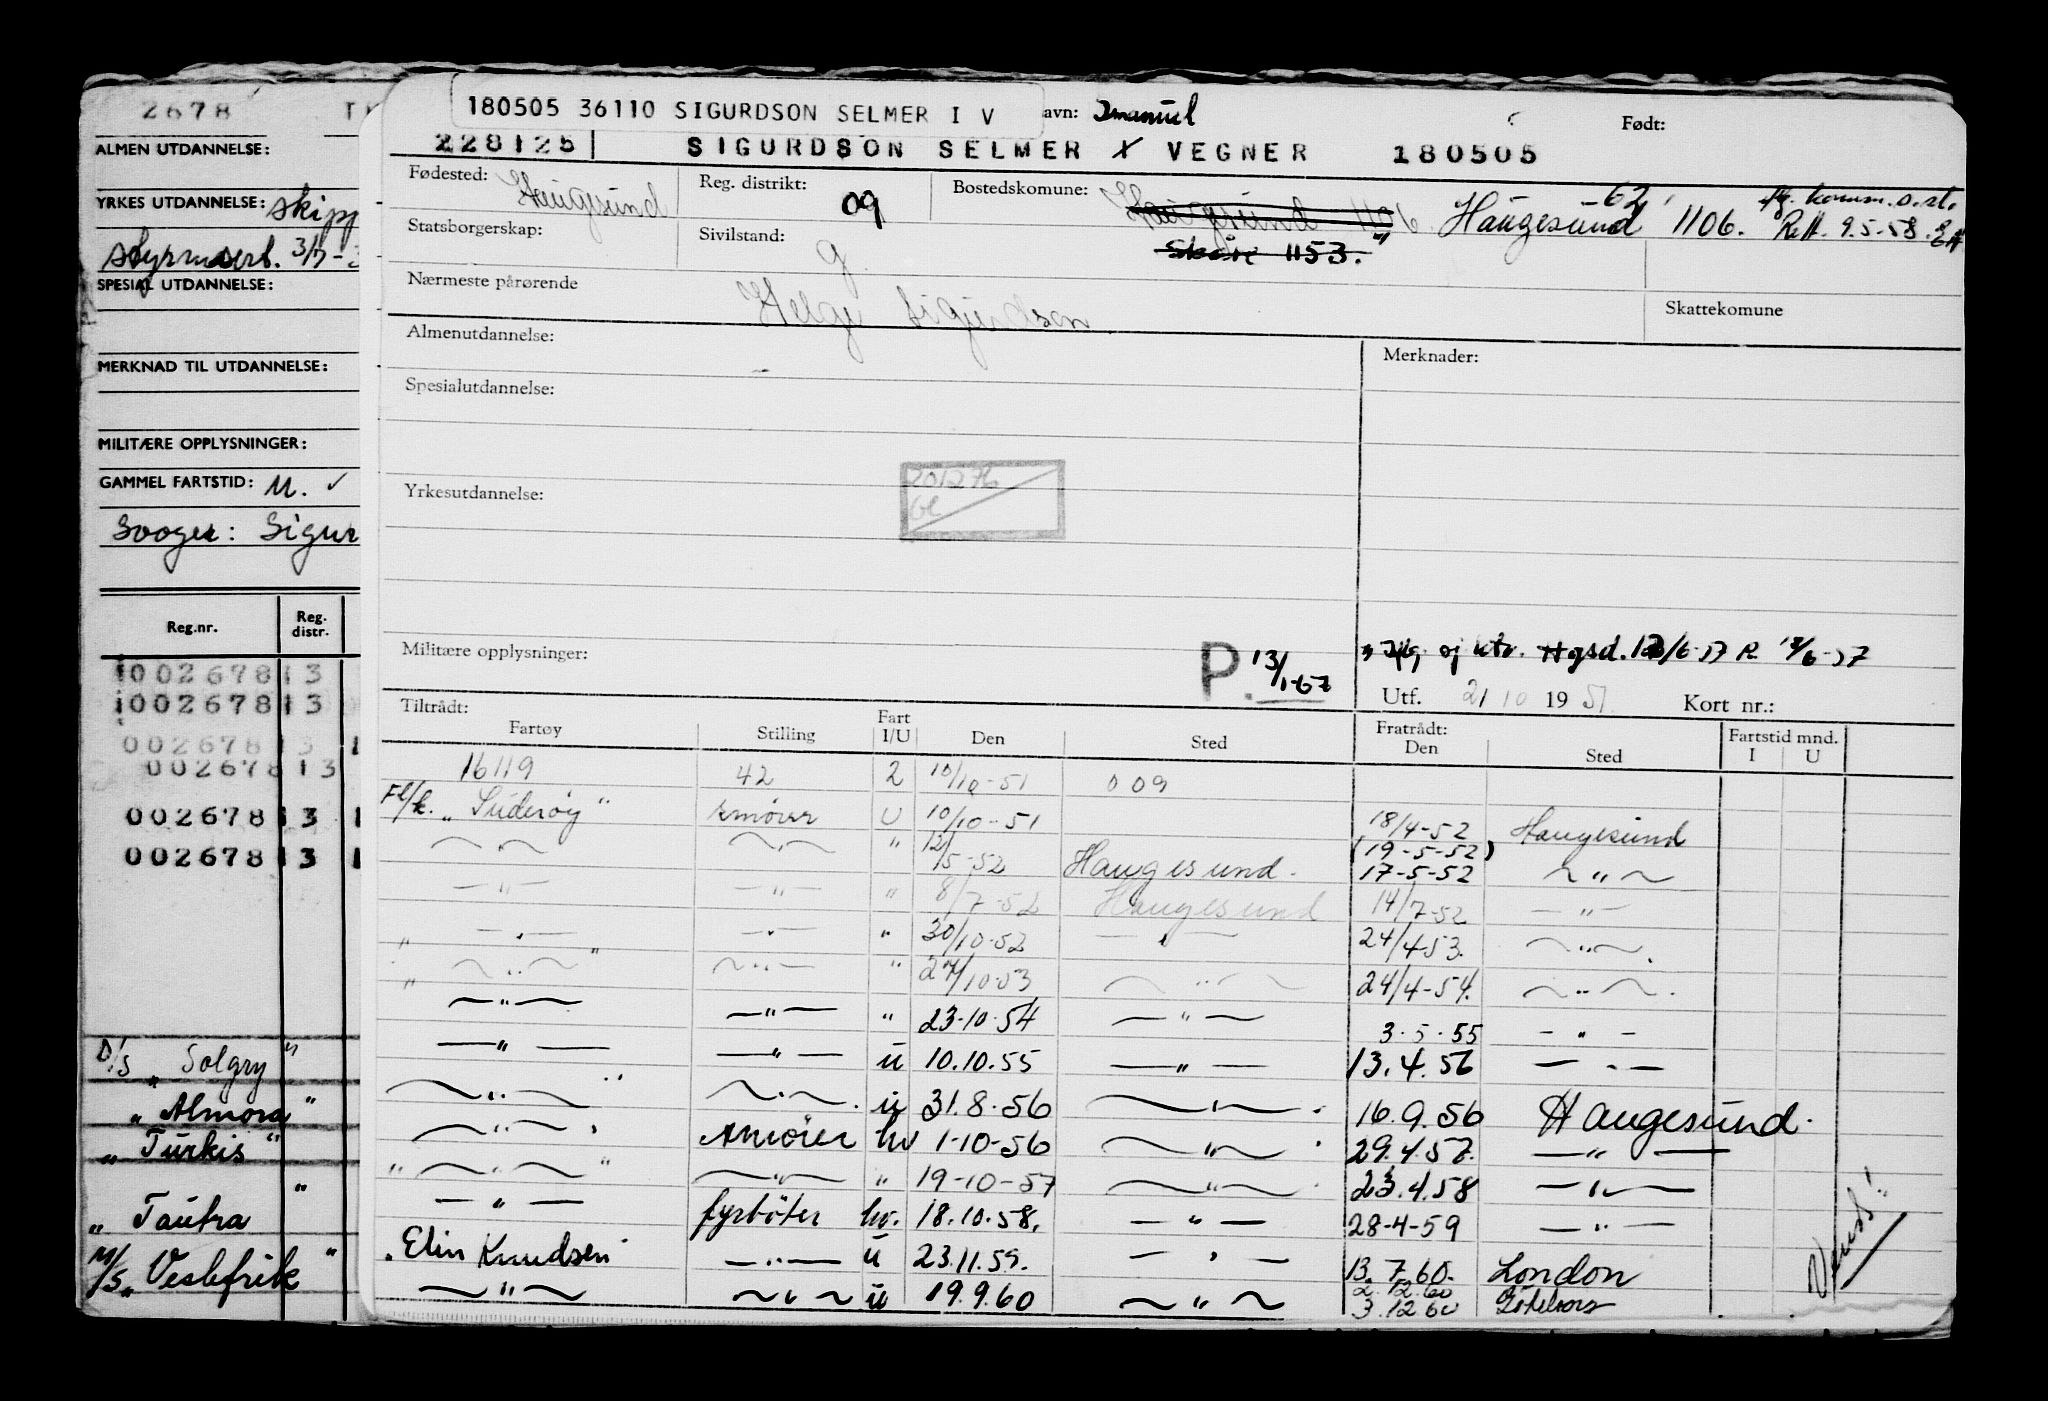 2678
ALMEN UTDANNELSE:
YRKES UTDANNELSE: skipp
styrmsert. 3/7-3
SPESIAL UTDANNELSE:
MERKNAD TIL UTDANNELSE:
MILITÆRE OPPLYSNINGER:
GAMMEL FARTSTID: M. ✓
Svoger: Sigur
Reg.nr. Reg. distr.
100267813
100267813
00267813
00267813
00267813
00267813
D/S „Solgry"
„Almora"
„Turkis"
„Tautra"
M/S „Veslefrik"
180505 36110 SIGURDSON SELMER I V avn: Imanuel Født:
228125 SIGURDSON SELMER I VEGNER 180505
Fødested: Haugesund Reg. distrikt: 09 Bostedskomune: Haugesund 1106 Haugesund 62 1106. flg. komm.s.st.
Rett. 9.5.58.
Statsborgerskap: Sivilstand: g Skåre 1153.
Nærmeste pårørende Helge Sigurdson Skattekomune
Almenutdannelse: Merknader:
Spesialutdannelse:
Yrkesutdannelse: 201276
Militære opplysninger: P. 13/1-67
Utf. 21 10 1951 Kort nr.:
Tiltrådt: Fratrådt: Fartstid mnd.
Fartøy Stilling Fart I/U Den Sted Den Sted I U
16119 42 2 10/10-51 009
Fl/k. „Suderøy" smører U 10/10-51 18/4-52 Haugesund
(19-5-52)
— " — — " — " 12/5-52 Haugesund. 17-5-52 — " —
— " — — " — " 8/7-52 Haugesund 14/7-52 — " —
— " — — " — " 30/10-52 — " — 24/4-53. — " —
— " — — " — " 27/10-53 — " — 24/4-54. — " —
— " — — " — " 23-10-54 — " — 3-5-55 — " —
— " — — " — u 10.10.55 — " — 13.4.56 — " —
— " — — " — u 31.8.56 — " — 16.9.56 Haugesund.
— " — smører hv 1-10-56 — " — 29.4.57. — " —
— " — — " — " 19-10-57 — " — 23.4.58 — " —
— " — fyrbøter hv. 18.10.58. — " — 28-4-59 — " —
„Elin Knudsen" — " — u 23.11.59. — " — 13.7.60. London
2.12.60
— " — — " — u 19.9.60 — " — 3.12.60 Göteborg
Vend!